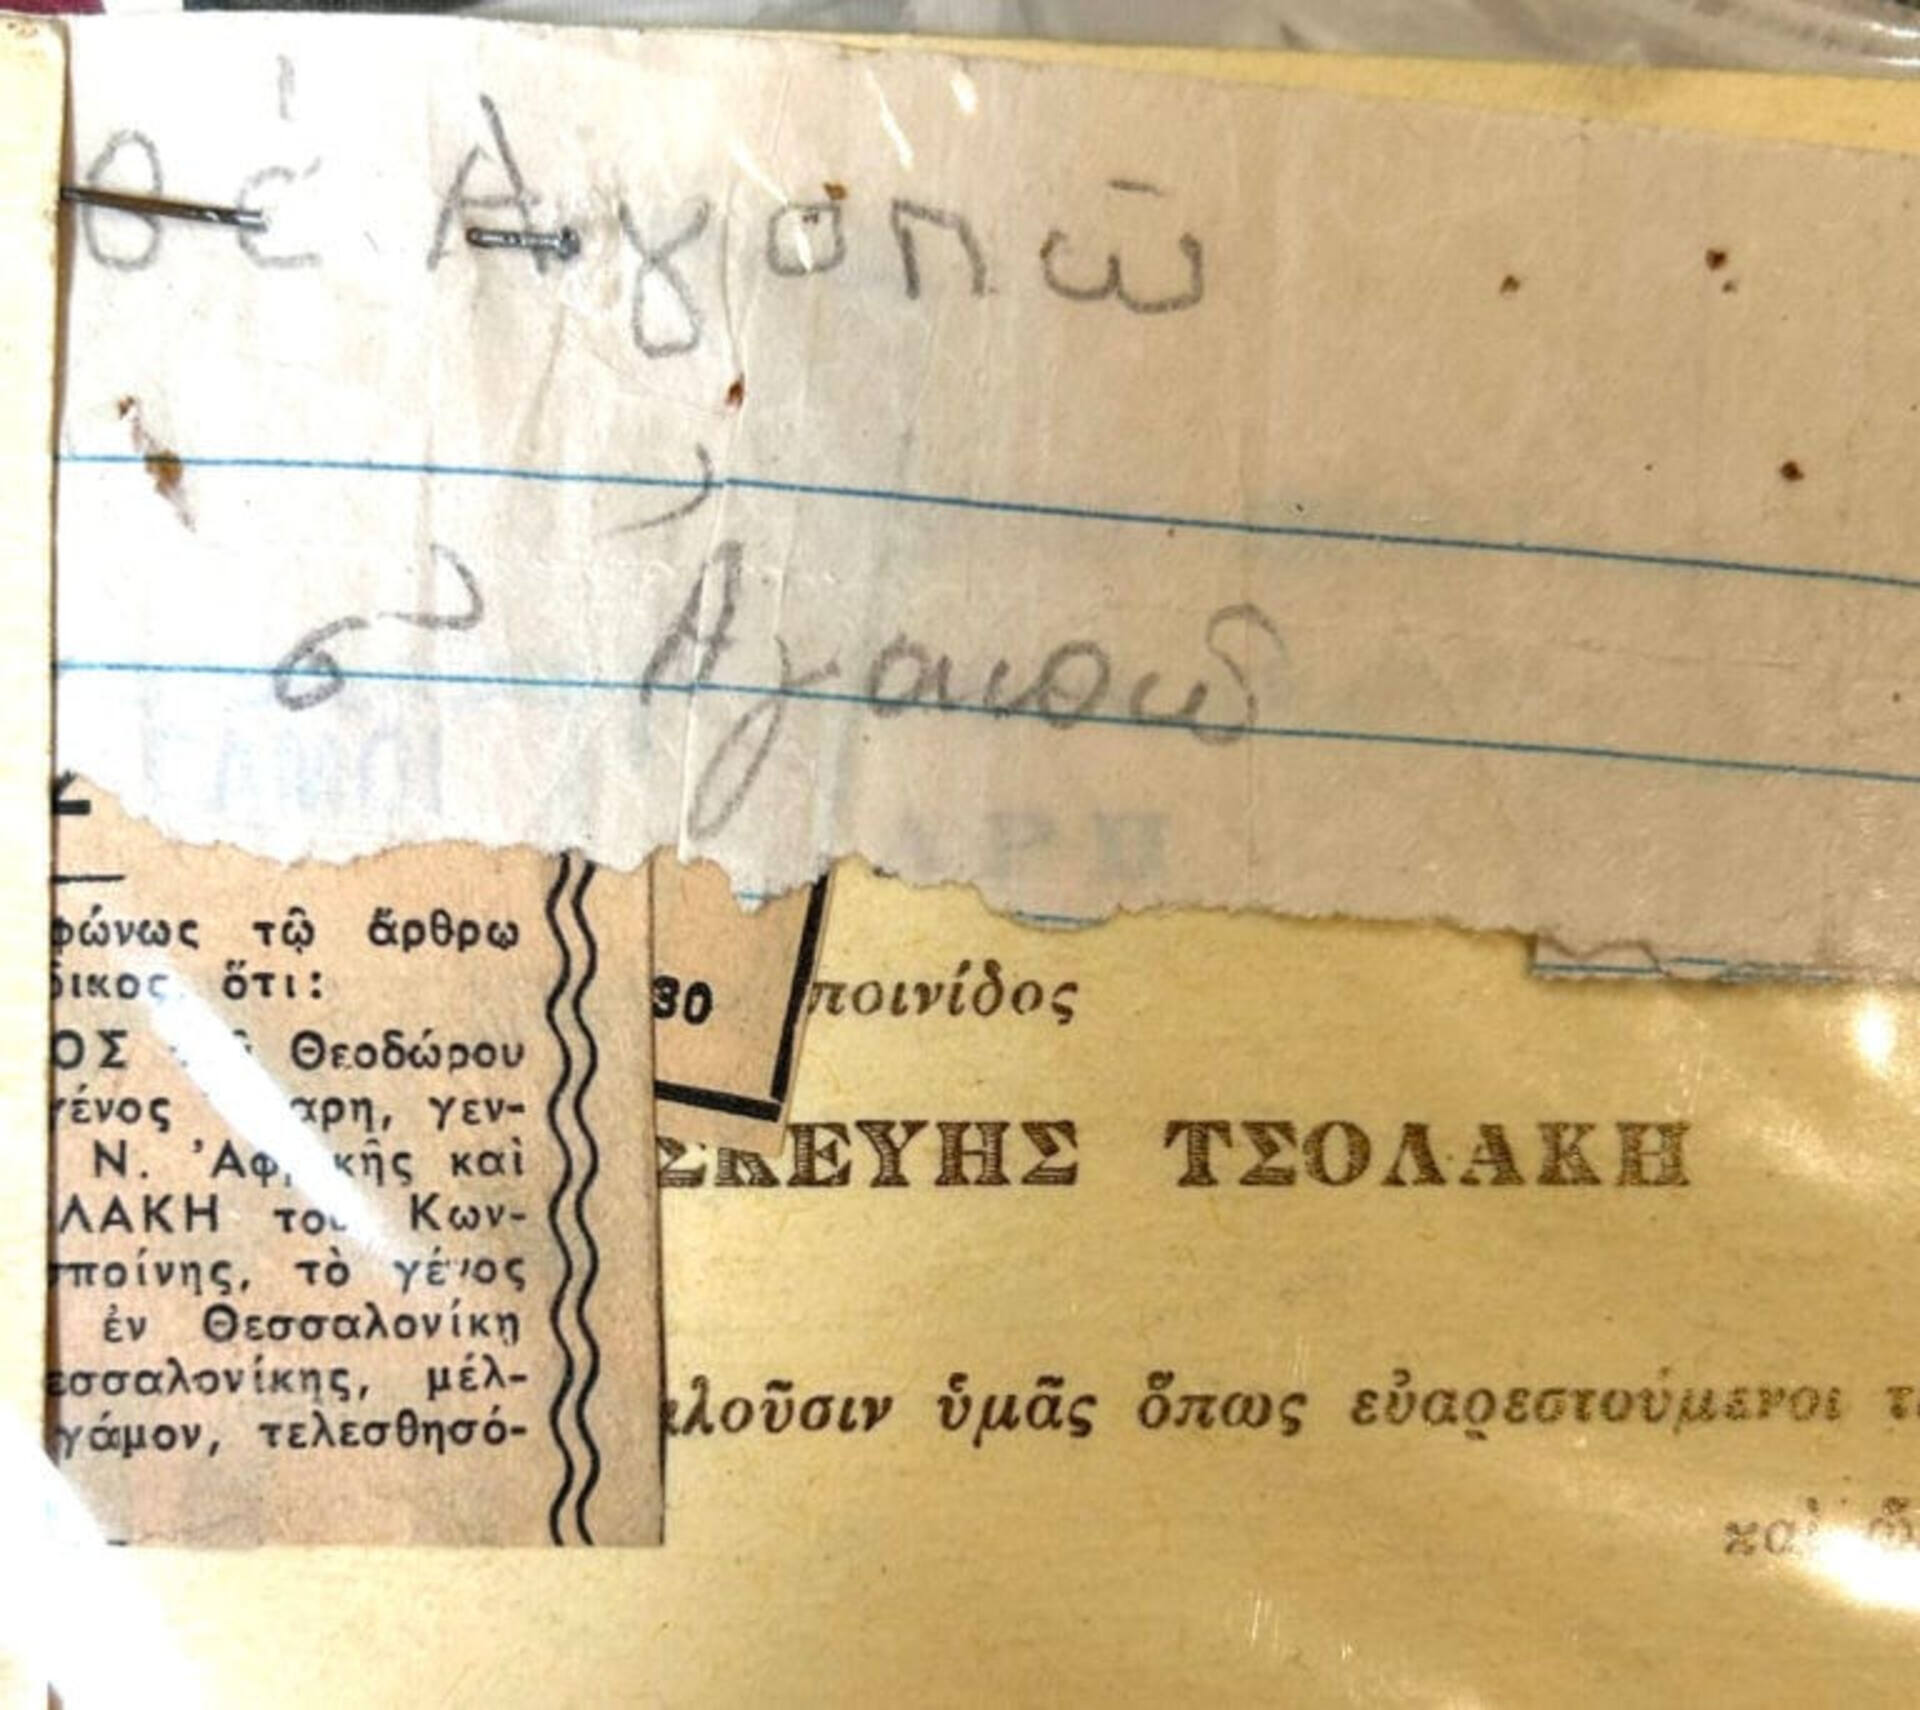 θέ Αγοπῶ
σ' Ἀγαπῶ
φώνως τῷ ἄρθρῳ
δικος, ὅτι:
ΟΣ Θεοδώρου
γένος αρη, γεν-
Ν. Ἀφρικῆς καὶ
ΛΑΚΗ τοῦ Κων-
ποίνης, τὸ γένος
ἐν Θεσσαλονίκῃ
εσσαλονίκης, μέλ-
γάμον, τελεσθησό-
30
ποινίδος
ΣΚΕΥΗΣ ΤΣΟΛΑΚΗ
αλοῦσιν ὑμᾶς ὅπως εὐαρεστούμενοι
καὶ